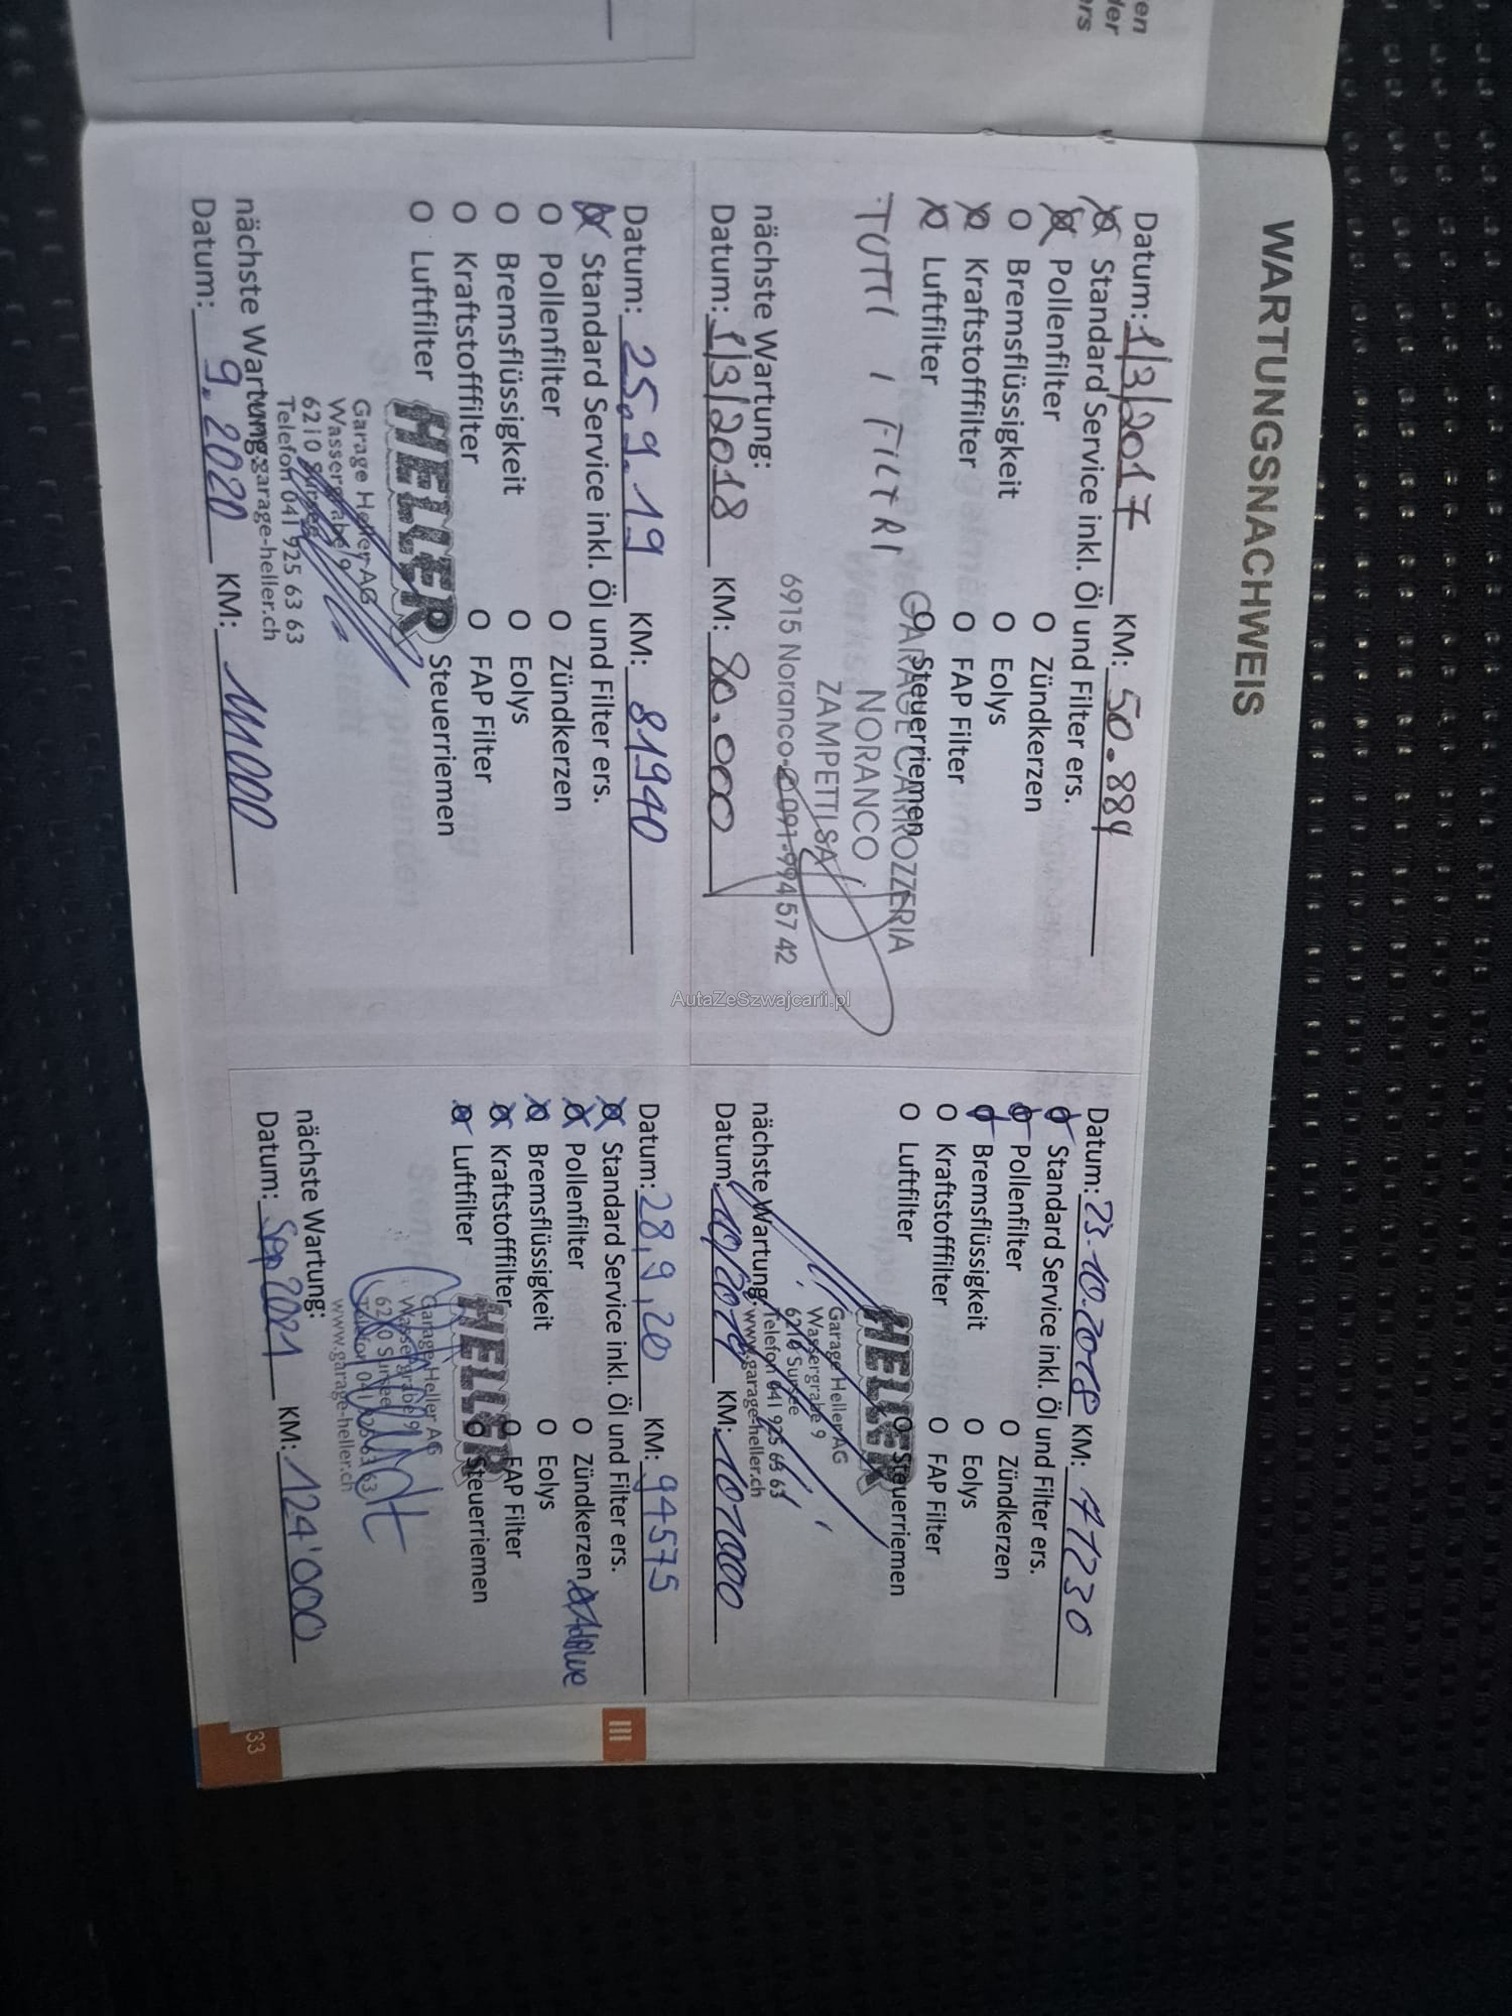 en
der
ers
WARTUNGSNACHWEIS
Datum: 1/3/2017 KM: 50.884
Standard Service inkl. Öl und Filter ers.
Pollenfilter O Zündkerzen
O Bremsflüssigkeit O Eolys
Kraftstofffilter O FAP Filter
Luftfilter O Steuerriemen
TUTTI I FILTRI
GARAGE CARROZZERIA
NORANCO
ZAMPETTI SA
6915 Noranco - 091-994 57 42
nächste Wartung:
Datum: 1/3/2018 KM: 80.000
Datum: 23.10.2018 KM: 71230
Standard Service inkl. Öl und Filter ers.
Pollenfilter O Zündkerzen
Bremsflüssigkeit O Eolys
O Kraftstofffilter O FAP Filter
O Luftfilter O Steuerriemen
HELLER
Garage Heller AG
Wassergrabe 9
6210 Sursee
Telefon 041 925 63 63
www.garage-heller.ch
nächste Wartung:
Datum: 10/2019 KM: 101000
Datum: 25.9.19 KM: 81940
Standard Service inkl. Öl und Filter ers.
O Pollenfilter O Zündkerzen
O Bremsflüssigkeit O Eolys
O Kraftstofffilter O FAP Filter
O Luftfilter O Steuerriemen
HELLER
Garage Heller AG
Wassergrabe 9
6210 Sursee
Telefon 041 925 63 63
www.garage-heller.ch
nächste Wartung:
Datum: 9.2020 KM: 111000
Datum: 28.9.20 KM: 94575
Standard Service inkl. Öl und Filter ers.
Pollenfilter O Zündkerzen Adblue
Bremsflüssigkeit O Eolys
Kraftstofffilter O FAP Filter
Luftfilter O Steuerriemen
HELLER
Garage Heller AG
Wassergrabe 9
6210 Sursee
Telefon 041 925 63 63
www.garage-heller.ch
nächste Wartung:
Datum: Sep 2021 KM: 124'000
III
33
AutaZeSzwajcarii.pl